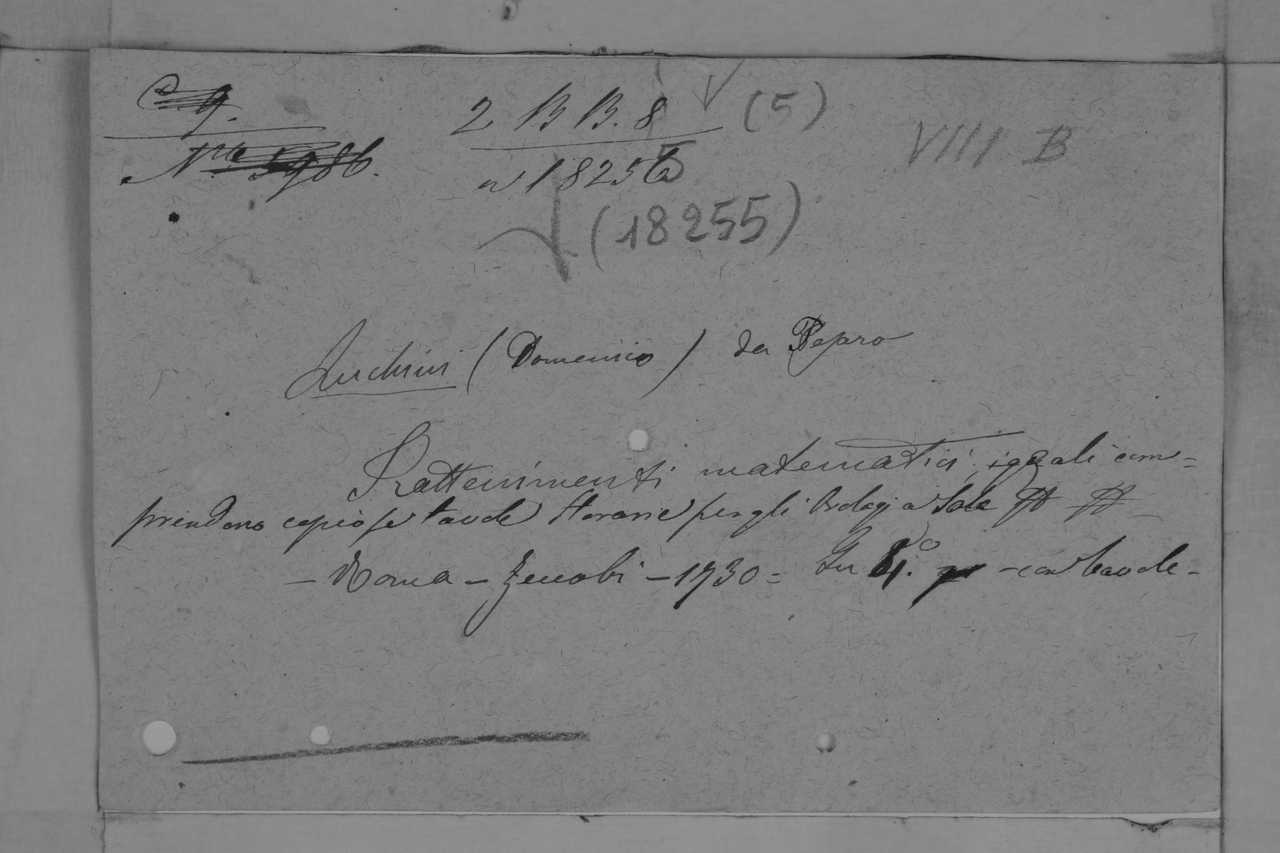 C 9.
Nro 5986.
2 B B. 8 (5)
n 18255
VIII B
(18255)
Luchini (Domenico) da Pesaro
Trattenimenti matematici, i quali com=
prendono copiose tavole Horarie per gli Orologi a Sole
– Roma – – 1730 = In 4.° – con tavole –